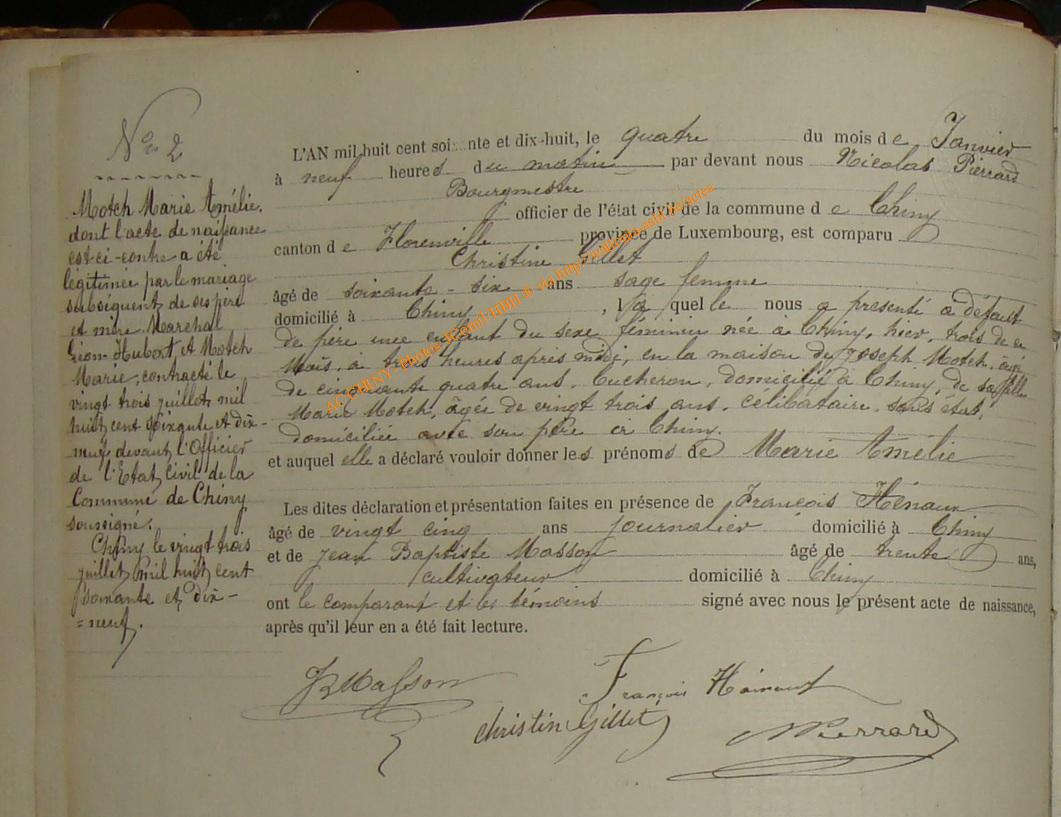 No 2
Motch Marie Amélie,
dont l'acte de naissance
est ci-contre a été
légitimée par le mariage
subséquent de ses père
et mère Marchal
Jean-Hubert, et Motch
Marie, contracté le
vingt trois juillet, mil
huit cent soixante et dix-
neuf devant l'Officier
de l'Etat Civil de la
Commune de Chiny
soussigné.
Chiny le vingt trois
juillet mil huit cent
soixante et dix-
=neuf.
L'AN mil huit cent soixante et dix-huit, le quatre du mois de Janvier
à neuf heures du matin par devant nous Nicolas Pierrard
Bourgmestre
officier de l'état civil de la commune de Chiny
canton de Florenville province de Luxembourg, est comparu
Christine Gillet
âgé de soixante-six ans sage femme
domicilié à Chiny, laquelle nous a présenté à défaut
de père une enfant du sexe féminin née à Chiny, hier, trois de ce
mois, à trois heures après midi, en la maison de Joseph Motch, âgé
de cinquante quatre ans, bucheron, domicilié à Chiny, de sa fille
Marie Motch, âgée de vingt trois ans, célibataire, sans état,
domiciliée avec son père à Chiny.
et auquel elle a déclaré vouloir donner les prénoms de Marie Amélie
Les dites déclaration et présentation faites en présence de François Hénaux
âgé de vingt cinq ans journalier domicilié à Chiny
et de Jean Baptiste Masson âgé de trente ans,
cultivateur domicilié à Chiny
ont le comparant et les témoins signé avec nous le présent acte de naissance,
après qu'il leur en a été fait lecture.
JBMasson
François Hainaut
christin Gillet
NPierrard